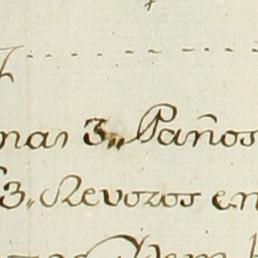 nas 3,, Paños
3,, Revozos en